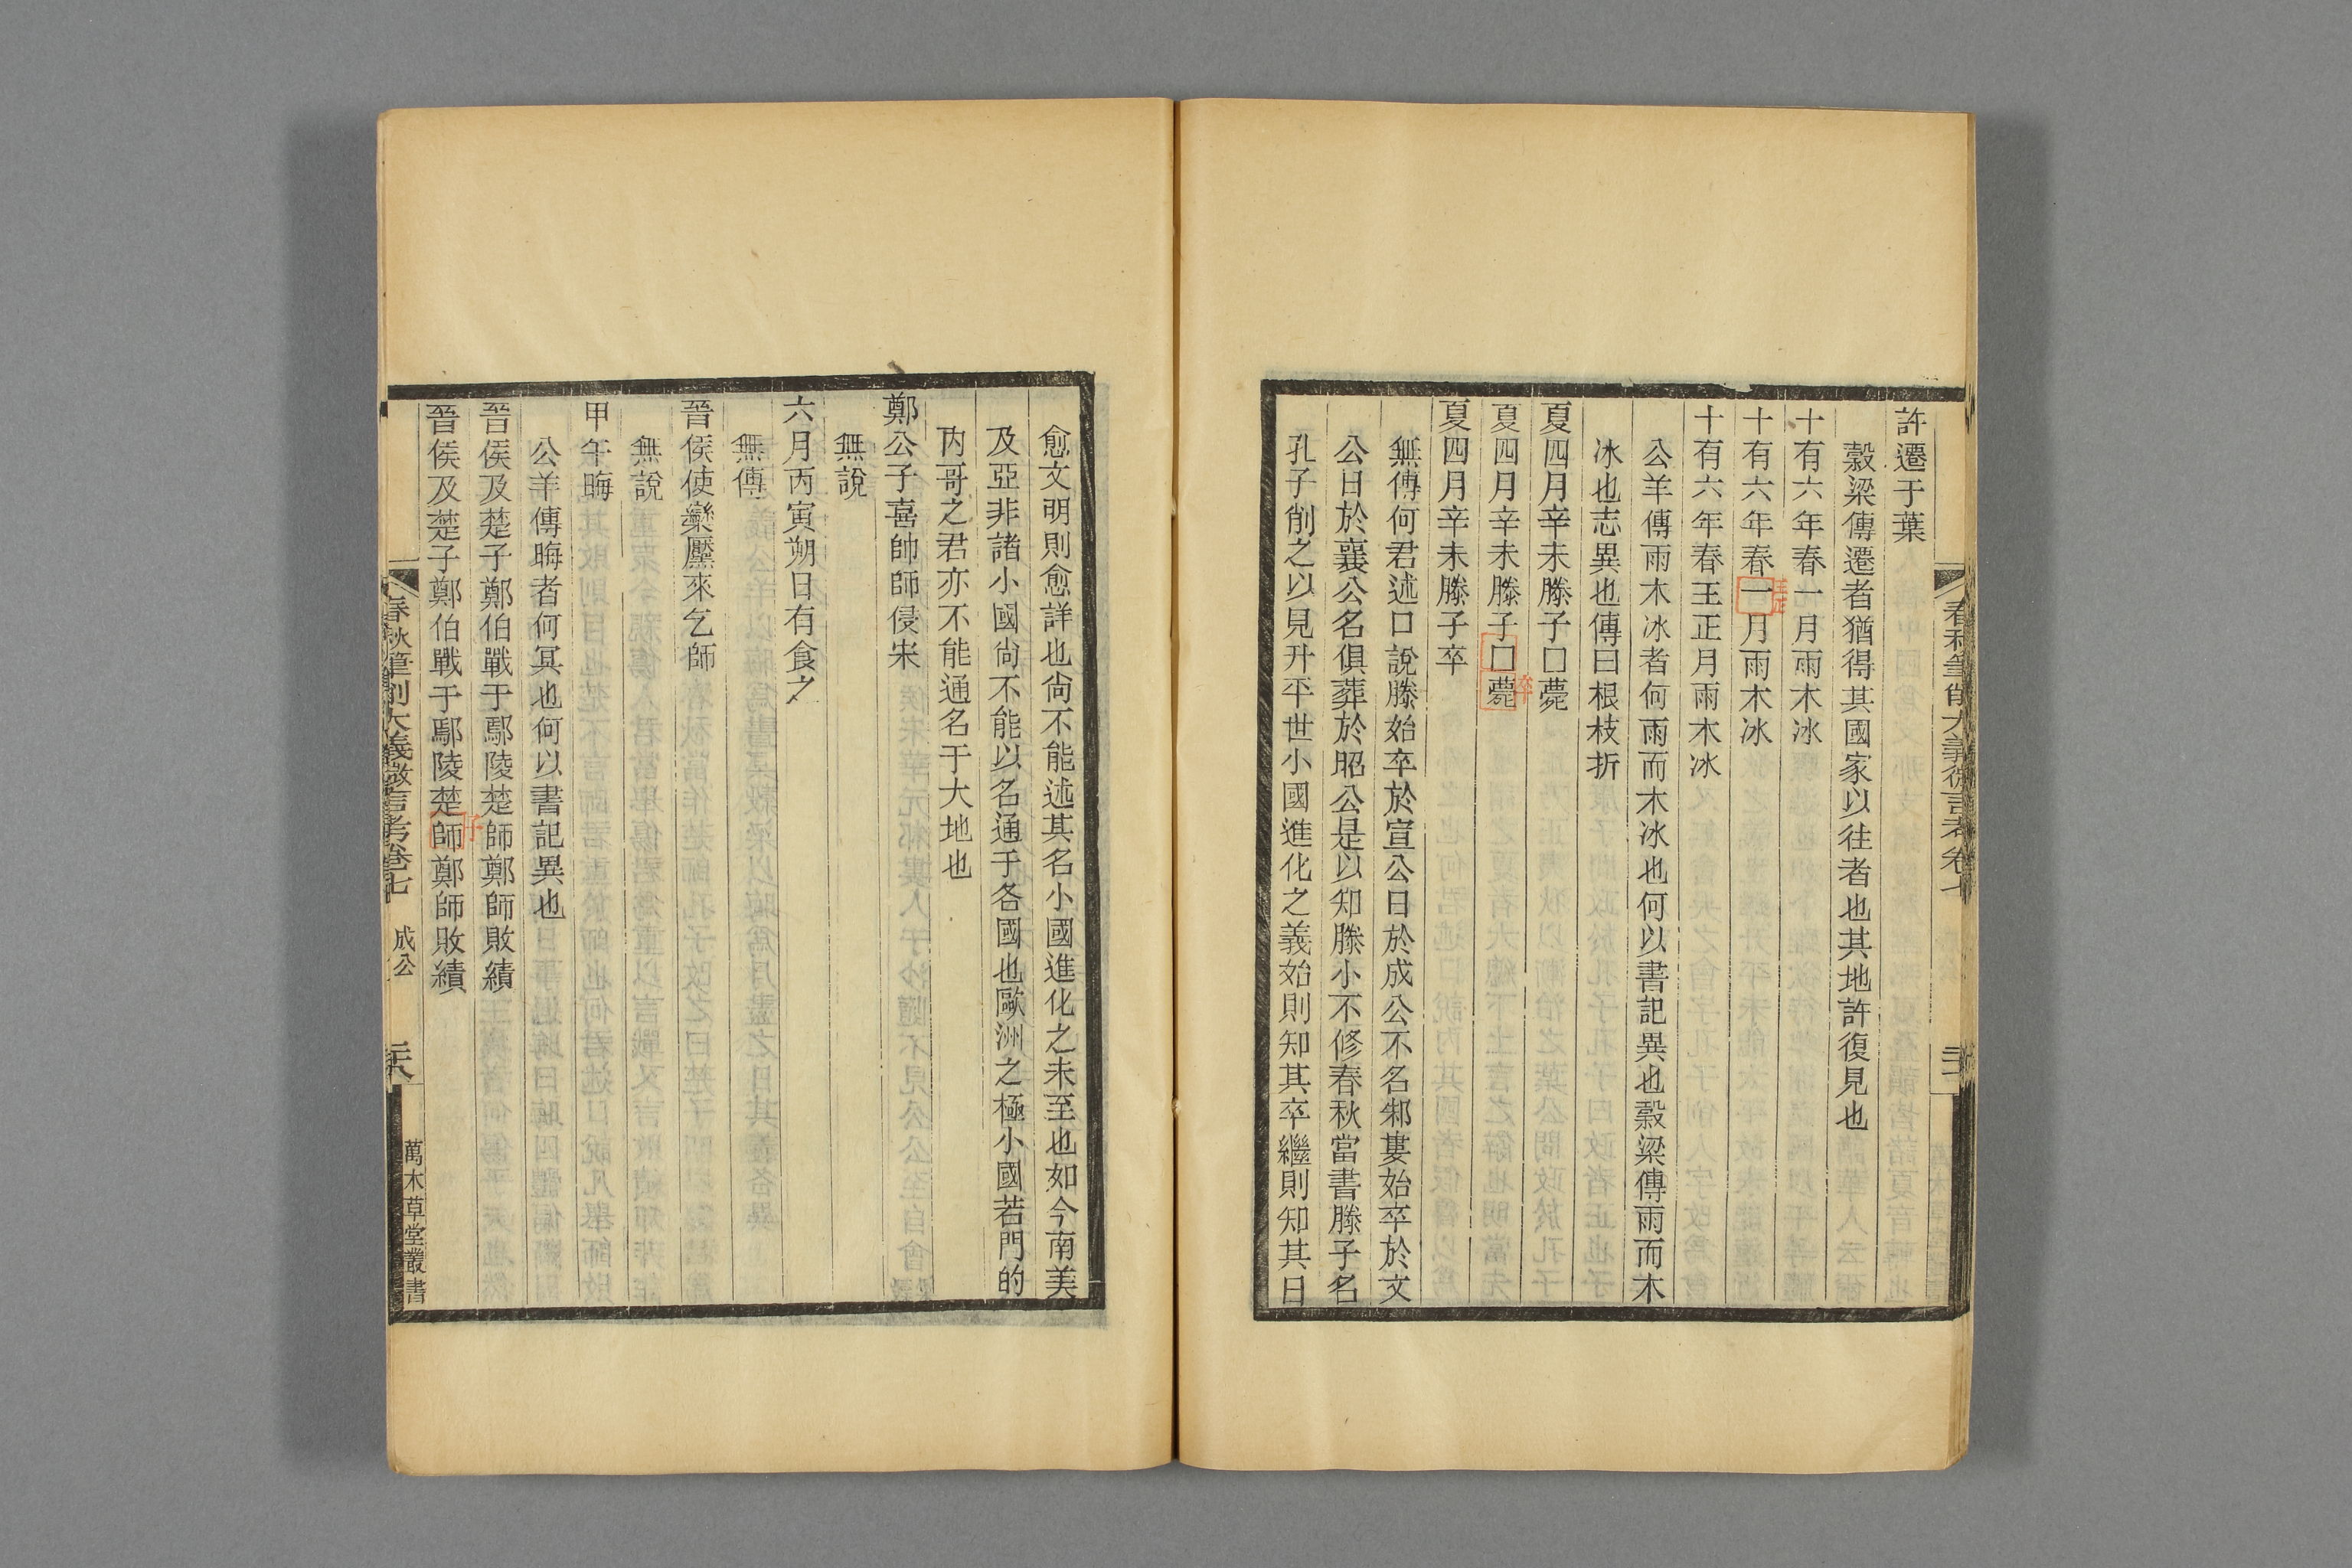 許遷于葉
穀梁傳遷者猶得其國家以往者也其地許復見也
十有六年春一月雨木冰
十有六年春一月雨木冰
王正
十有六年春王正月雨木冰
公羊傳雨木冰者何雨而木冰也何以書記異也穀梁傳雨而木
冰也志異也傳曰根枝折
夏四月辛未滕子囗薨
夏四月辛未滕子囗薨
卒
夏四月辛未滕子卒
無傳何君述口說滕始卒於宣公日於成公不名邾婁始卒於文
公日於襄公名俱葬於昭公是以知滕小不修春秋當書滕子名
孔子削之以見升平世小國進化之義始則知其卒繼則知其日
愈文明則愈詳也尙不能述其名小國進化之未至也如今南美
及亞非諸小國尙不能以名通于各國也歐洲之極小國若門的
內哥之君亦不能通名于大地也
鄭公子喜帥師侵宋
無說
六月丙寅朔日有食之
無傳
晉侯使欒黶來乞師
無說
甲午晦
公羊傳晦者何冥也何以書記異也
晉侯及楚子鄭伯戰于鄢陵楚師鄭師敗績
晉侯及楚子鄭伯戰于鄢陵楚師鄭師敗績
子
春秋筆削大義微言考卷七
成公
萬木草堂叢書
春秋筆削大義微言考卷七